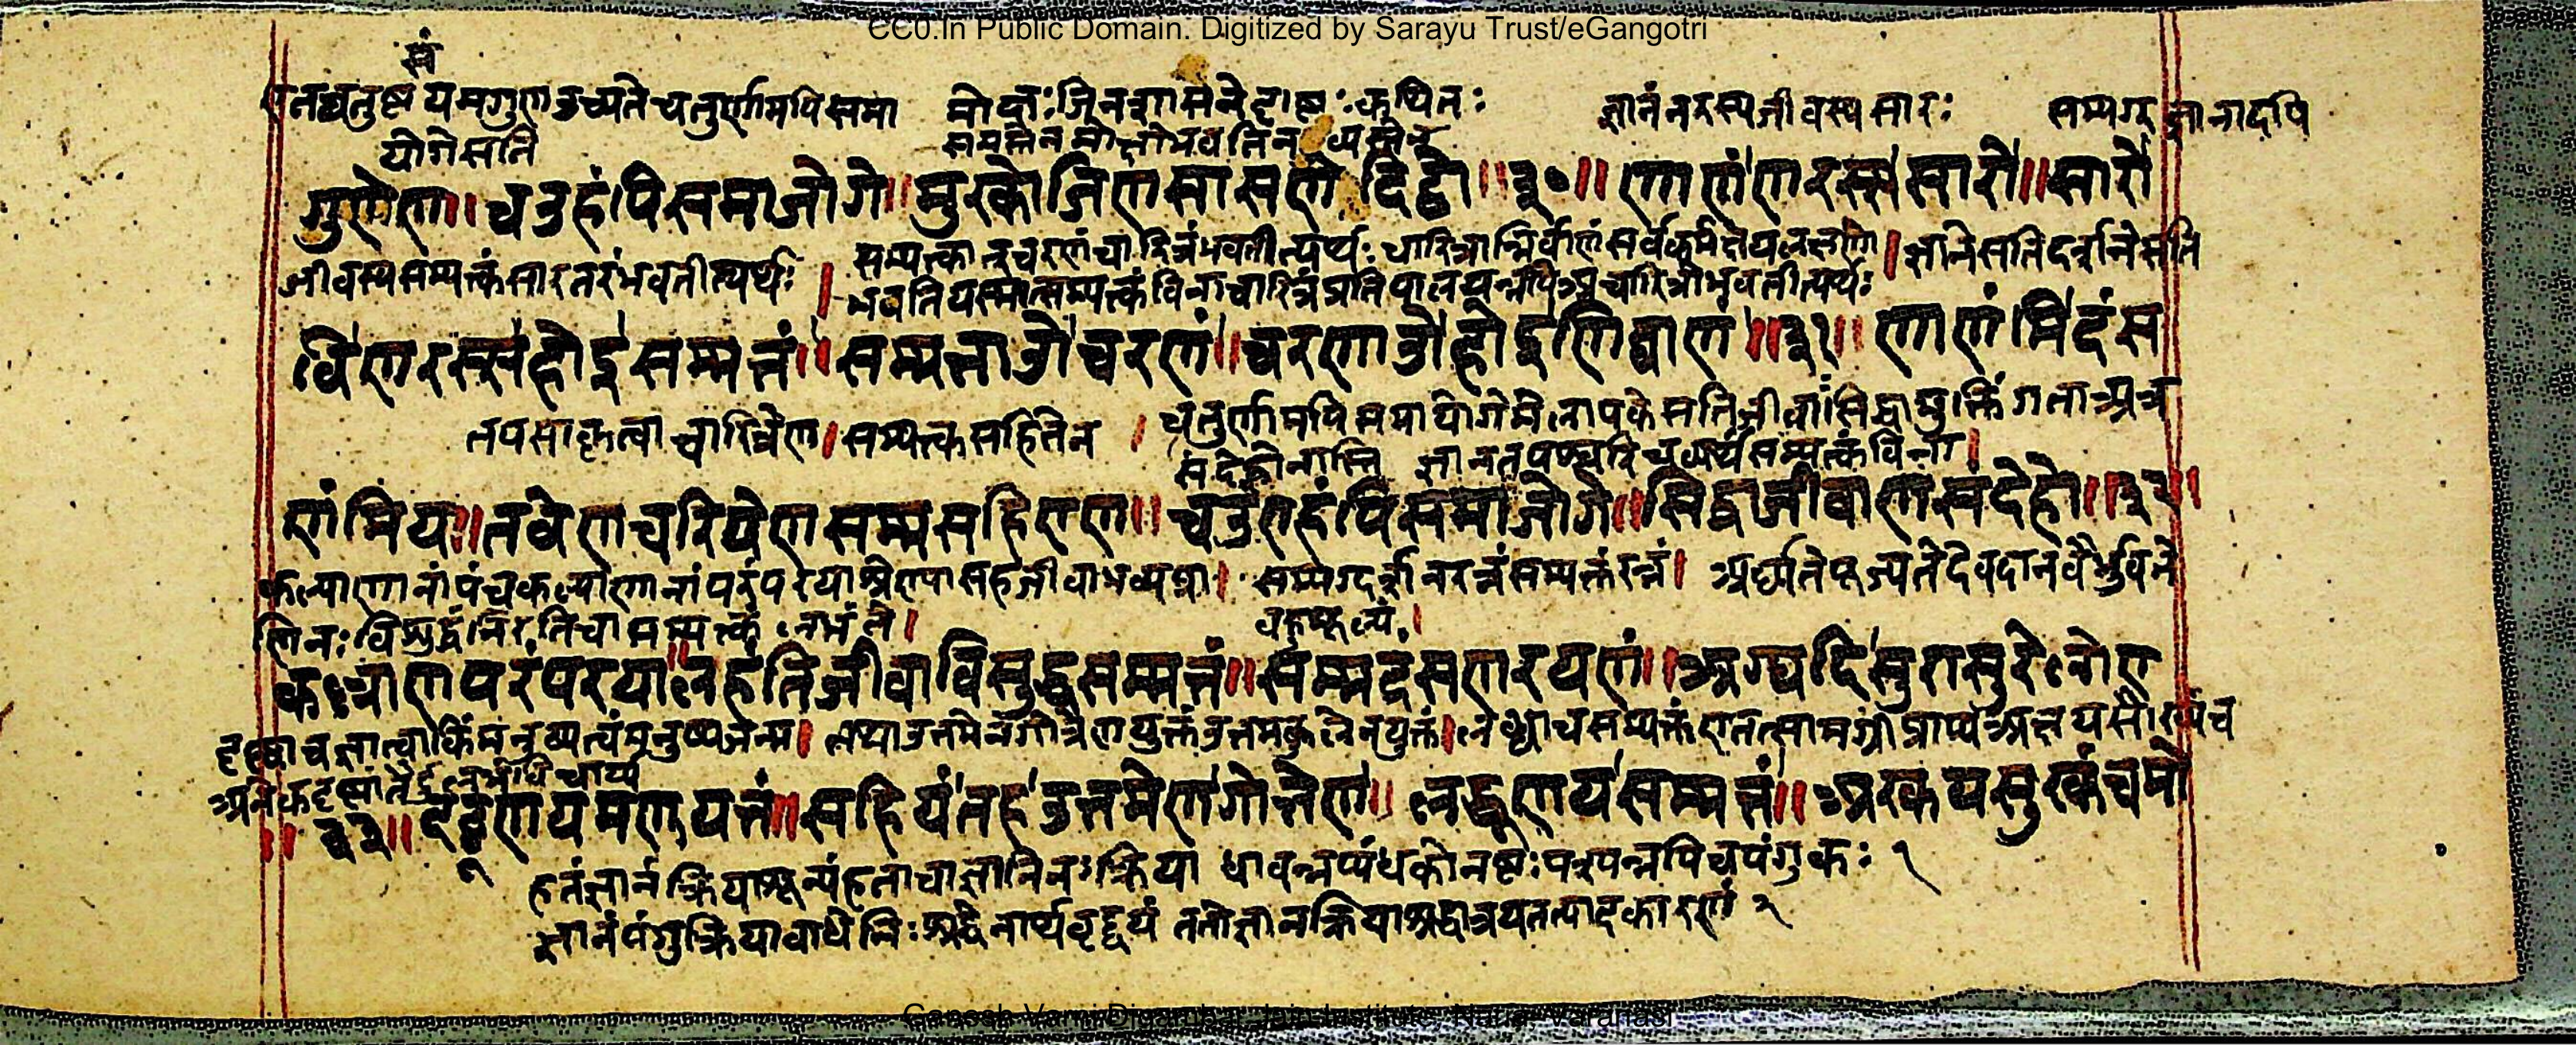 CC0.In Public Domain. Digitized by Sarayu Trust/eGangotri
एतच्चतुष्टयमगुण उच्यते चतुर्णामपि समा मोक्षः जिनशासने दृष्टः कथितः ज्ञानं नरस्य जीवस्य सारः सम्यग्ज्ञानादपि
योगे सति समस्तेन मोक्षो भवति न व्यस्तेन
गुणेण ॥ चउहंपि समाजोगे ॥ मुरको जिणसासणे दिट्ठो ॥३०॥ णाणं णरस्स सारो ॥ सारो
जीवस्य सम्यक्त्कं सारतरं भवतीत्यर्थः । सम्यक्त्कानुचरणं चारित्रं भवतीत्यर्थः चारित्रान्निर्वाणं सर्वकर्मक्षयलक्षणं । ज्ञाने सति दर्शने सति
भवति यस्मात्सम्यक्त्कं विना चारित्रं प्रतिपालयन्नपि अचारित्रो भवतीत्यर्थः
वि णरस्स होइ सम्मत्तं ॥ सम्मत्ताओ चरणं ॥ चरणाओ होइ णिव्वाण ॥३१॥ णाणंमि दंस
तपसा कृत्वा चारित्रेण । सम्यक्त्कसहितेन । चतुर्णामपि समायोगे मेलापके सति जीवाः सिद्धा मुक्तिं गता अत्र
संदेहो नास्ति ज्ञानतपश्चारित्र व्यर्थं सम्यक्त्कं विना ।
णंमि य ॥ तवेण चरियेण सम्मसहिएण ॥ चउएहंपि समाजोगे ॥ सिद्धा जीवा ण संदेहो ॥३२॥
कल्याणानां पंचकल्याणानां परंपरया श्रेण्या सह जीवा भव्यप्रा । सम्यग्दर्शनरत्नं सम्यक्त्करत्नं । अर्घ्यते पूज्यते देवदानवैर्भुवने
णिनः विशुद्धं निरतिचा सम्यक्त्कं लभंते । बहुमूल्यं ।
कल्लाणपरंपरया ॥ लहंति जीवा विसुद्धसम्मत्तं ॥ सम्मद्दंसणरयणं ॥ अग्घदि सुरासुरे लोए
दृष्ट्वा च ज्ञात्वा किं मनुष्यत्वं मनुष्यजन्म । तथा उत्तमेन गोत्रेण युक्तं उत्तमकुलेन युक्तं । लब्ध्वा च सम्यक्त्कं एतत्सामग्री प्राप्य अक्षयसौख्यं च
अनेकदृष्टांतैर्दुर्लभं विचार्य
॥३३॥ दट्ठूण य मणुयत्तं ॥ सहियं तह उत्तमेण गोत्तेण ॥ लद्धूण य सम्मत्तं ॥ अरकयसुरकं च मो
हतं ज्ञानं क्रियाशून्यं हता चाज्ञानिनः क्रिया धावन्नप्यंधको नष्टः पश्यन्नपि च पंगुकः १
ज्ञानं पंगु क्रिया चांधे निःश्रद्धे नार्थकृद्द्वयं ततो ज्ञानक्रियाश्रद्धात्रयं तत्पदकारणं २
Ganesh Varni Digambar Jain Institute, Naria, Varanasi